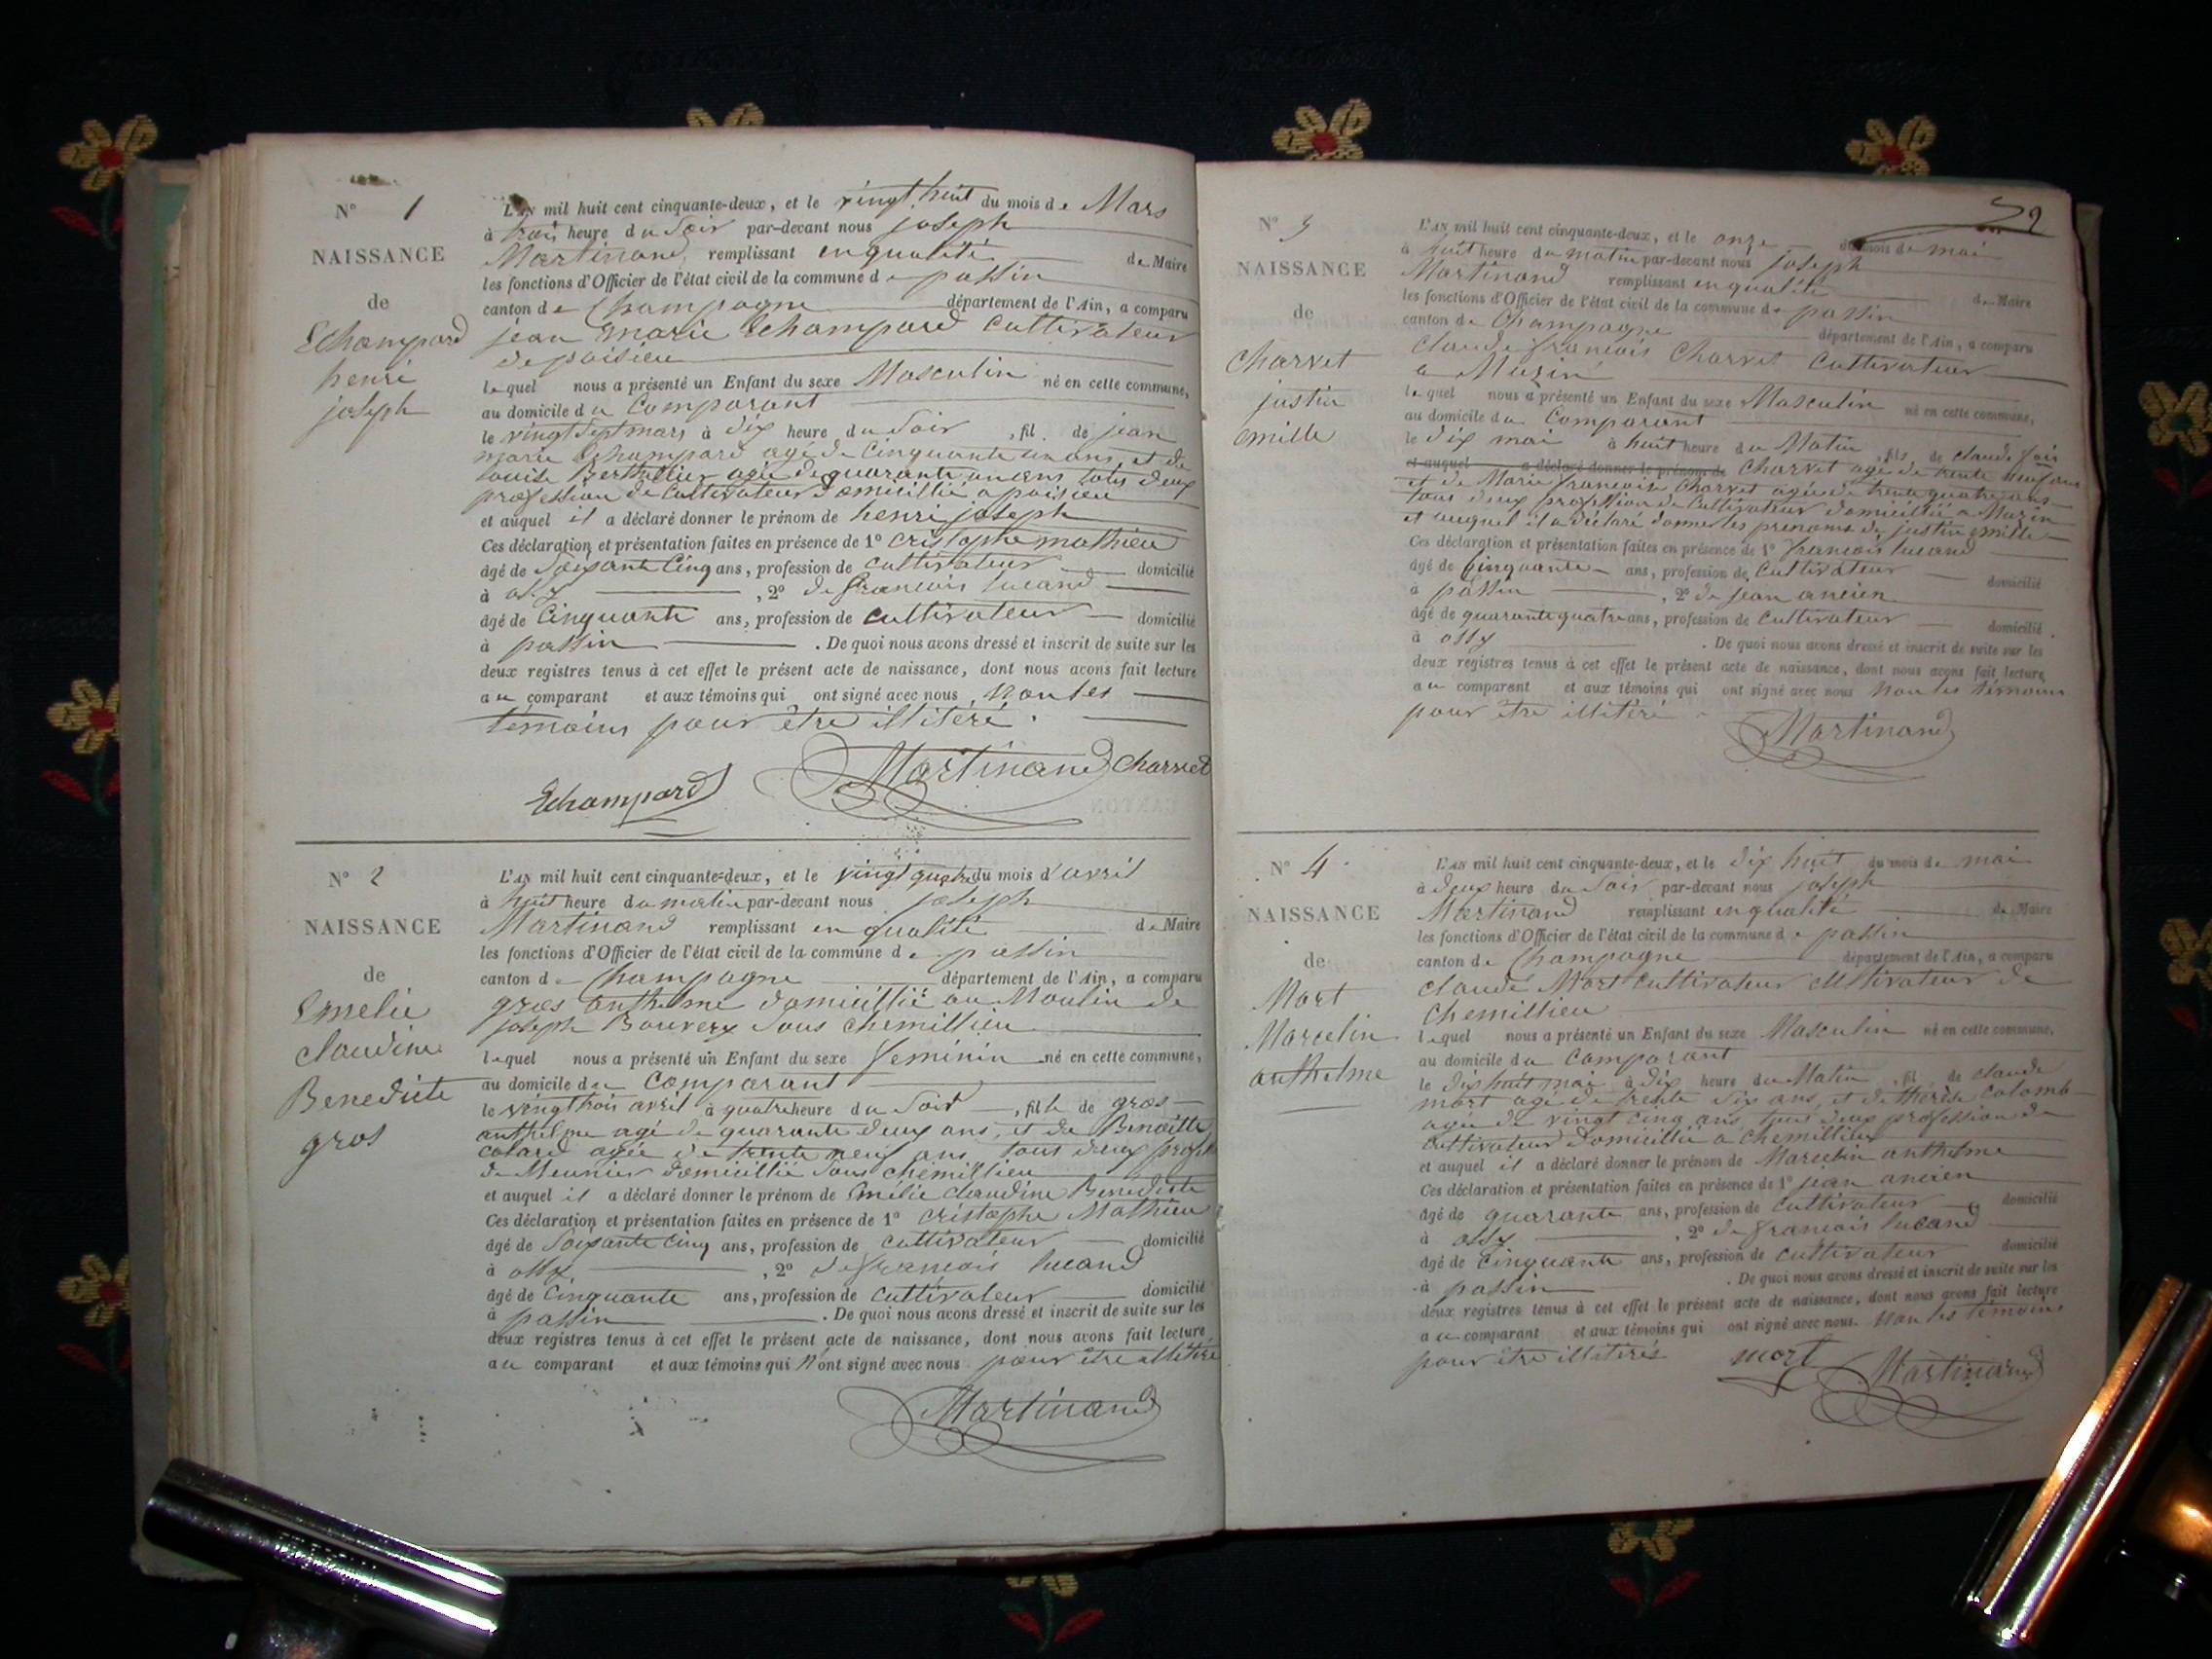 N° 1
NAISSANCE
de
Echampard
henri
joseph
L'AN mil huit cent cinquante-deux, et le vingt huit du mois de Mars
à trois heure du Soir par-devant nous joseph
Martinand remplissant en qualité de Maire
les fonctions d'Officier de l'état civil de la commune de passin
canton de Champagne département de l'Ain, a comparu
jean marie Echampard Cultivateur
de poisieu
lequel nous a présenté un Enfant du sexe Masculin né en cette commune,
au domicile du Comparant
le vingt sept mars à dix heure du Soir, fil de jean
marie Echampard agé de Cinquante un ans, et de
louise Berthellier agée de quarante un ans tous deux
profession de Cultivateur domicillié a poisieu
et auquel il a déclaré donner le prénom de henri joseph
Ces déclaration et présentation faites en présence de 1° Cristophe mathieu
âgé de Soixante Cinq ans, profession de Cultivateur domicilié
à ossy, 2° de francois lucand
âgé de Cinquante ans, profession de Cultivateur domicilié
à passin. De quoi nous avons dressé et inscrit de suite sur les
deux registres tenus à cet effet le présent acte de naissance, dont nous avons fait lecture
au comparant et aux témoins qui ont signé avec nous, Non les
témoins pour être illitéré.
Echampard Martinand Charvet
N° 2
NAISSANCE
de
Emelie
Claudine
Benedicte
gros
L'AN mil huit cent cinquante-deux, et le vingt quatre du mois d'avril
à huit heure du matin par-devant nous joseph
Martinand remplissant en qualité de Maire
les fonctions d'Officier de l'état civil de la commune de passin
canton de Champagne département de l'Ain, a comparu
gros anthelme domicillié au Moulin de
joseph Bouvery Sous Chemillieu
lequel nous a présenté un Enfant du sexe feminin né en cette commune,
au domicile du Comparant
le vingt trois avril à quatre heure du Soir, fille de gros
anthelme agé de quarante deux ans, et de Benoitte
Colard agée de trente neuf ans tous deux profession
de Meunier domicillié Sous chemillieu
et auquel il a déclaré donner le prénom de Emélie Claudine Benedicte
Ces déclaration et présentation faites en présence de 1° Cristophe Mathieu
âgé de Soixante Cinq ans, profession de Cultivateur domicilié
à ossy, 2° de francois lucand
âgé de Cinquante ans, profession de Cultivateur domicilié
à passin. De quoi nous avons dressé et inscrit de suite sur les
deux registres tenus à cet effet le présent acte de naissance, dont nous avons fait lecture
au comparant et aux témoins qui n'ont signé avec nous pour être illitéré
Martinand
N° 3
NAISSANCE
de
Charvet
justin
emille
L'AN mil huit cent cinquante-deux, et le onze du mois de mai
à huit heure du matin par-devant nous joseph
Martinand remplissant en qualité de Maire
les fonctions d'Officier de l'état civil de la commune de passin
canton de Champagne département de l'Ain, a comparu
Claude francois Charvet Cultivateur
a Muzin
lequel nous a présenté un Enfant du sexe Masculin né en cette commune,
au domicile du Comparant
le dix mai à huit heure du Matin, fils de claude fois
et auquel a déclaré donner le prénom de Charvet agé de trente neuf ans
et de Marie francoise Charvet agée de trente quatre ans
tous deux profession de Cultivateur domicillié a Muzin
et auquel il a déclaré donner les prenoms de justin emille
Ces déclaration et présentation faites en présence de 1° francois lucand
âgé de Cinquante ans, profession de Cultivateur domicilié
à passin, 2° de jean ancien
âgé de quarante quatre ans, profession de Cultivateur domicilié
à ossy. De quoi nous avons dressé et inscrit de suite sur les
deux registres tenus à cet effet le présent acte de naissance, dont nous avons fait lecture
au comparant et aux témoins qui ont signé avec nous Non les témoins
pour être illitéré
Martinand
N° 4
NAISSANCE
de
Mort
Marcelin
anthelme
L'AN mil huit cent cinquante-deux, et le dix huit du mois de mai
à deux heure du Soir par-devant nous joseph
Martinand remplissant en qualité de Maire
les fonctions d'Officier de l'état civil de la commune de passin
canton de Champagne département de l'Ain, a comparu
claude Mort Cultivateur Cultivateur de
Chemillieu
lequel nous a présenté un Enfant du sexe Masculin né en cette commune,
au domicile du Comparant
le dix huit mai à dix heure du Matin, fil de claude
mort agé de trente six ans, et de thérèse Colomb
agée de vingt cinq ans, tous deux profession de
Cultivateur domicillié a Chemillieu
et auquel il a déclaré donner le prénom de Marcelin anthelme
Ces déclaration et présentation faites en présence de 1° jean ancien
âgé de quarante ans, profession de Cultivateur domicilié
à ossy, 2° de francois lucand
âgé de Cinquante ans, profession de Cultivateur domicilié
à passin. De quoi nous avons dressé et inscrit de suite sur les
deux registres tenus à cet effet le présent acte de naissance, dont nous avons fait lecture
au comparant et aux témoins qui ont signé avec nous. Non les témoins
pour être illitérés mort Martinand